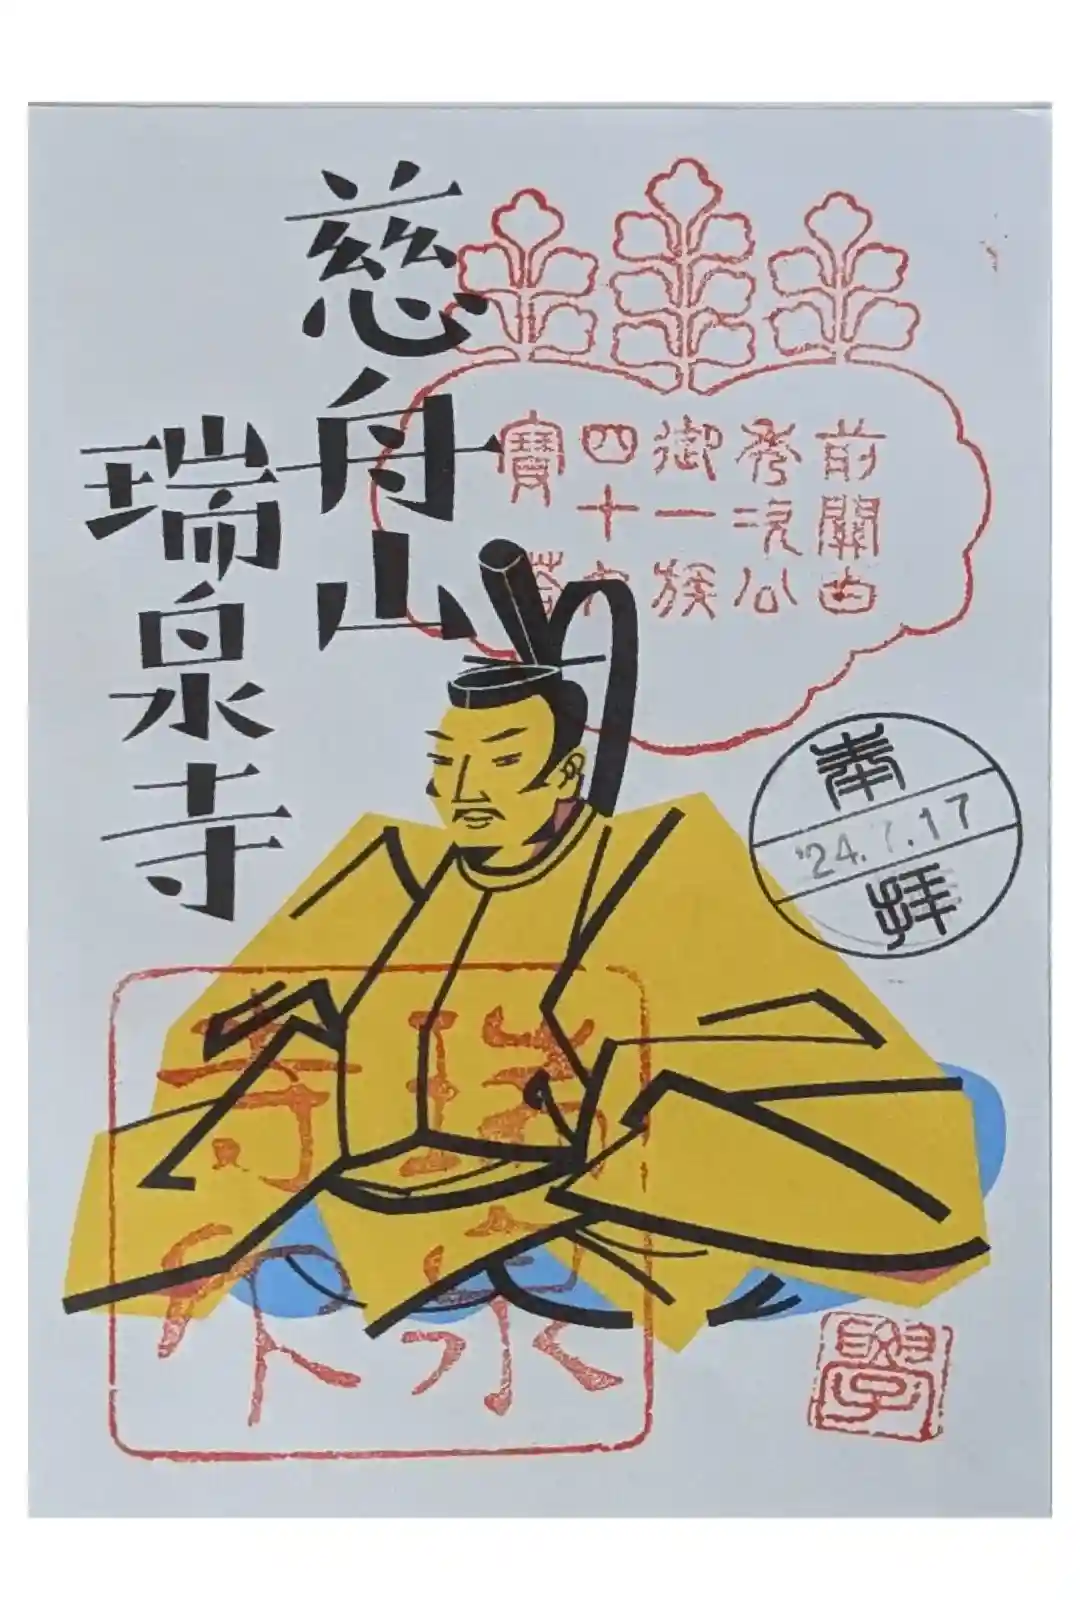 慈舟山
瑞泉寺
前關白
秀次公
御一族
四十九
寶塔
奉
'24.7.17
拝
瑞泉
寺印